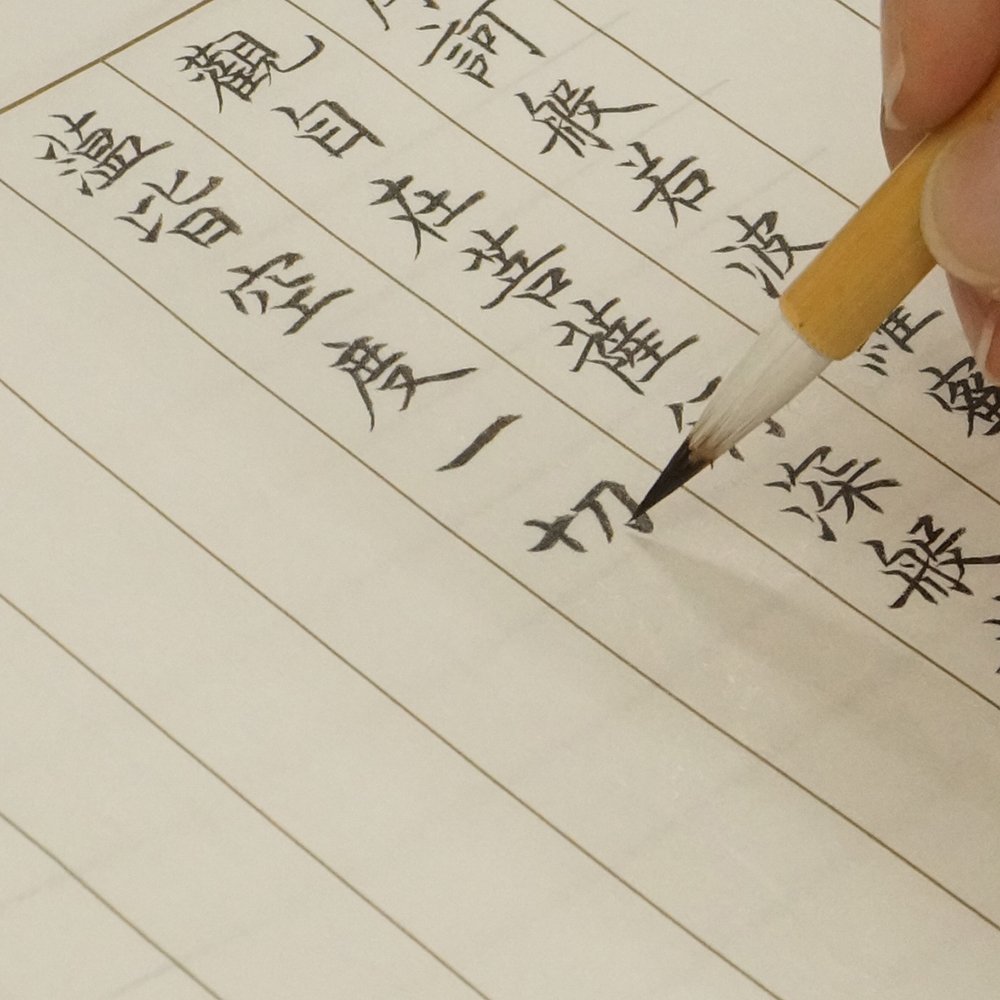 訶般若波羅蜜
觀自在菩薩行深般
薀皆空度一切